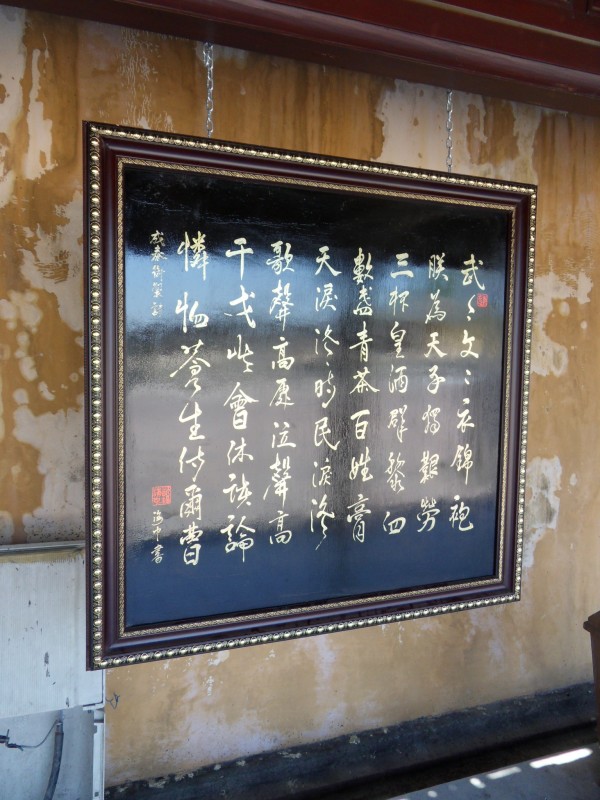 武々文々衣錦袍
朕為天子獨艱勞
三杯皇酒群黎血
數盞青茶百姓膏
天淚落時民淚落
歌聲高處泣聲高
干戈此會休談論
憐恤蒼生付爾曹
成泰御製詩
海中書